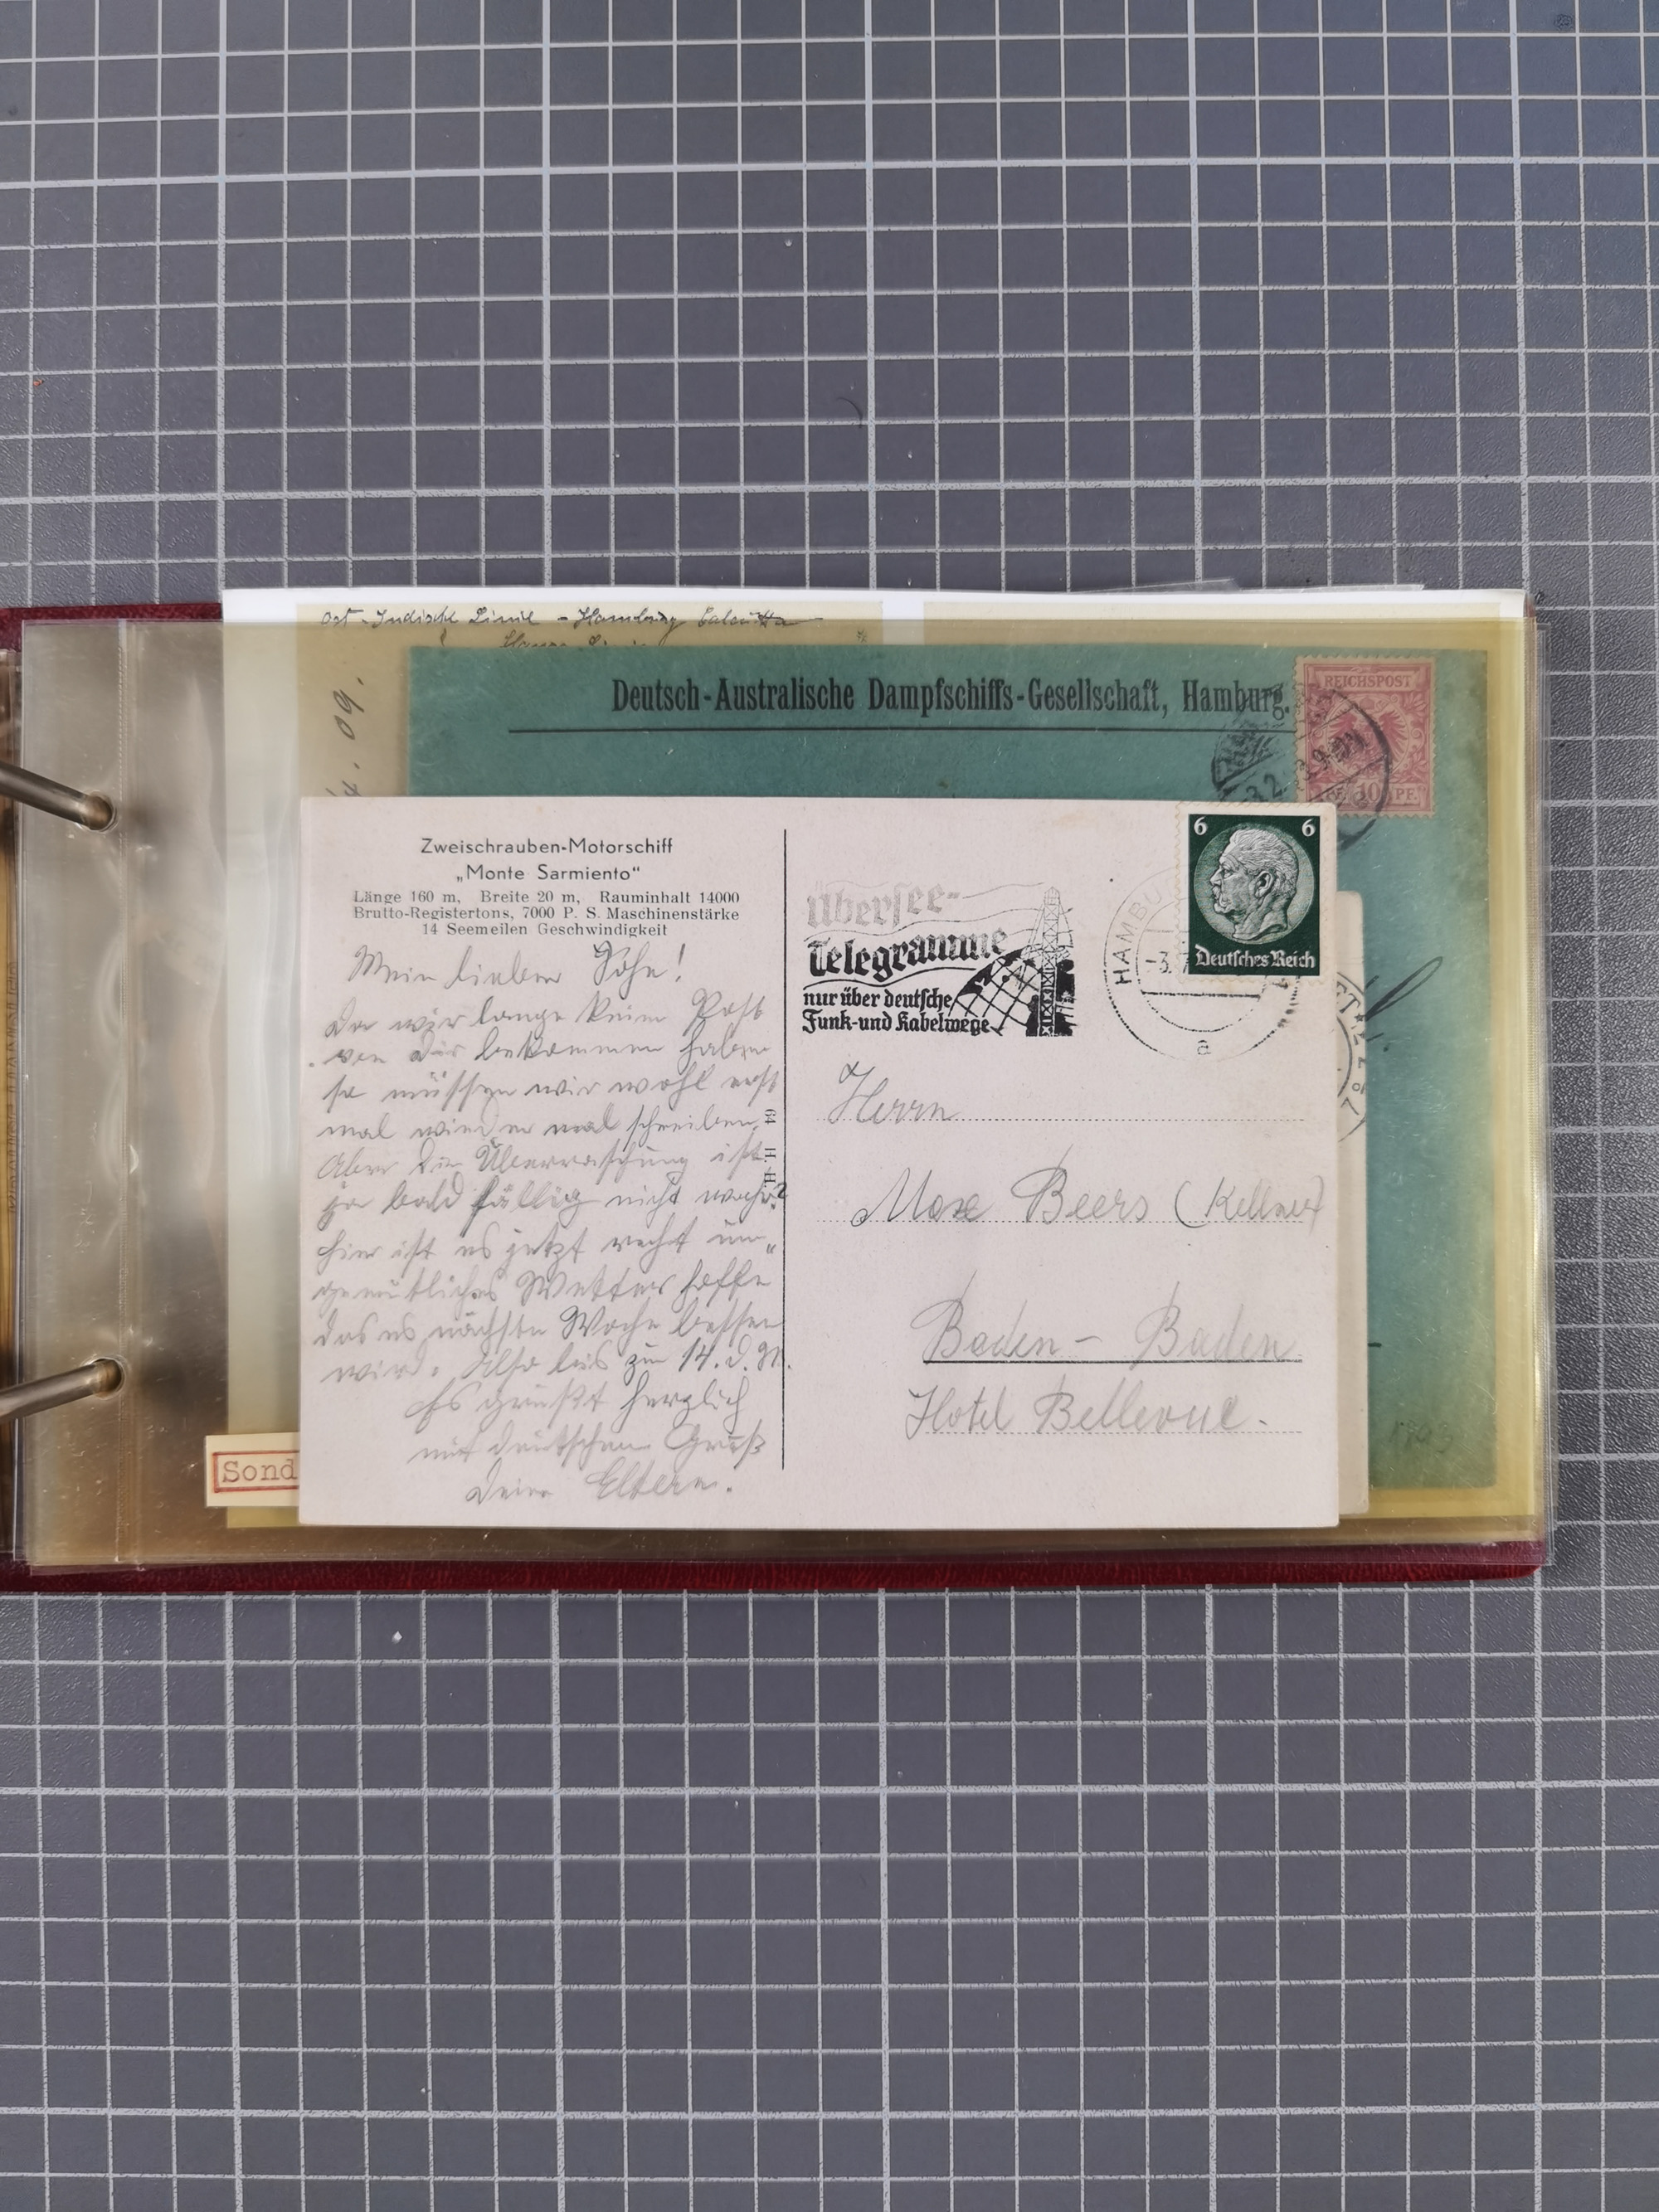 Ost-Indische Linie - Hamburg Calcutta
4. 09.
Deutsch-Australische Dampfschiffs-Gesellschaft, Hamburg.
REICHSPOST
10 PF.
Zweischrauben-Motorschiff
„Monte Sarmiento“
Länge 160 m, Breite 20 m, Rauminhalt 14000
Brutto-Registertons, 7000 P. S. Maschinenstärke
14 Seemeilen Geschwindigkeit
Mein lieber Sohn!
Da wir lange keine Post
von Dir bekommen haben
so müssen wir wohl erst
mal wieder mal schreiben,
Aber die Überraschung ist
ja bald fällig nicht wahr?
hier ist es jetzt recht un„
gemütliches Wetter hoffe
das es nächste Woche besser
wird. Also bis zum 14. d. M.
Es grüßt herzlich
mit deutschem Gruß
Deine Eltern.
Übersee-
Telegramme
nur über deutsche
Funk-und Kabelwege
HAMBU
-3.
a
6 6
Deutsches Reich
Herrn
Max Beers (Kellner)
Baden - Baden
Hotel Bellevue.
Sond
1893